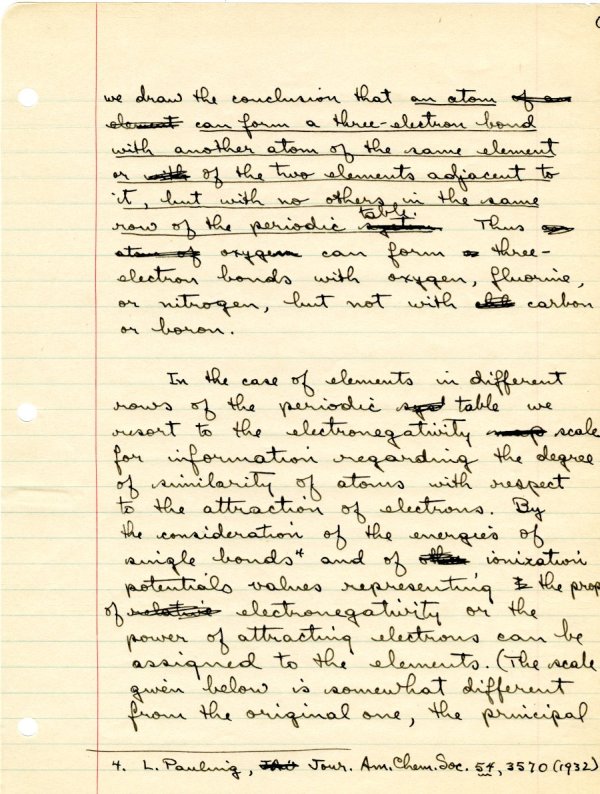 we draw the conclusion that an atom of an
element can form a three-electron bond
with another atom of the same element
or with of the two elements adjacent to
it, but with no others in the same
row of the periodic system table. Thus an
atom of oxygen can form a three-
electron bonds with oxygen, fluorine,
or nitrogen, but not with carbon
or boron.
In the case of elements in different
rows of the periodic syst table we
resort to the electronegativity map scale
for information regarding the degree
of similarity of atoms with respect
to the attraction of electrons. By
the consideration of the energies of
single bonds⁴ and of other ionization
potentials values representing the prop
of relative electronegativity or the
power of attracting electrons can be
assigned to the elements. (The scale
given below is somewhat different
from the original one, the principal
4. L. Pauling, Jour. Am. Chem. Soc. 54, 3570 (1932)